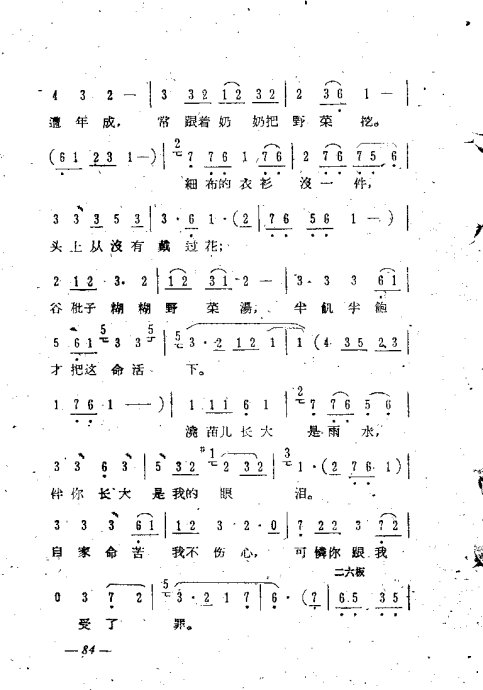 4 3 2 — | 3 32 12 32 | 2 36 1 — |
遭年成， 常 跟着奶 奶把 野菜 挖。
(61 231 —) | 7 761 76 | 2 76 75 6 |
細布的衣衫 沒一件，
3 3 35 3 | 3·61·(2 | 76 56 1 —) |
头上从沒有 戴 过花；
2 12 3·2 | 12 31 2 — | 3·3 3 61 |
谷秕子糊糊野 菜湯， 半飢半飽
5 61 3 3 | 3·212 1 | 1 (4·35 2,3 |
才把这命活 下。
1 761 —) | 1 11 6 1 | 7 76 5 6 |
澆苗儿长大 是雨水，
3 3 6 3 | 5 32 2 32 | 1·(2 76·) |
伴你长大 是我的 眼 泪。
3 3 3 61 | 12 3 2·0 | 7 22 3 72 |
自家命苦 我不伤心， 可憐你跟我
二六板
0 3 7 2 | 3·217 | 6·(7 | 65 35 |
受了 罪。
— 84 —